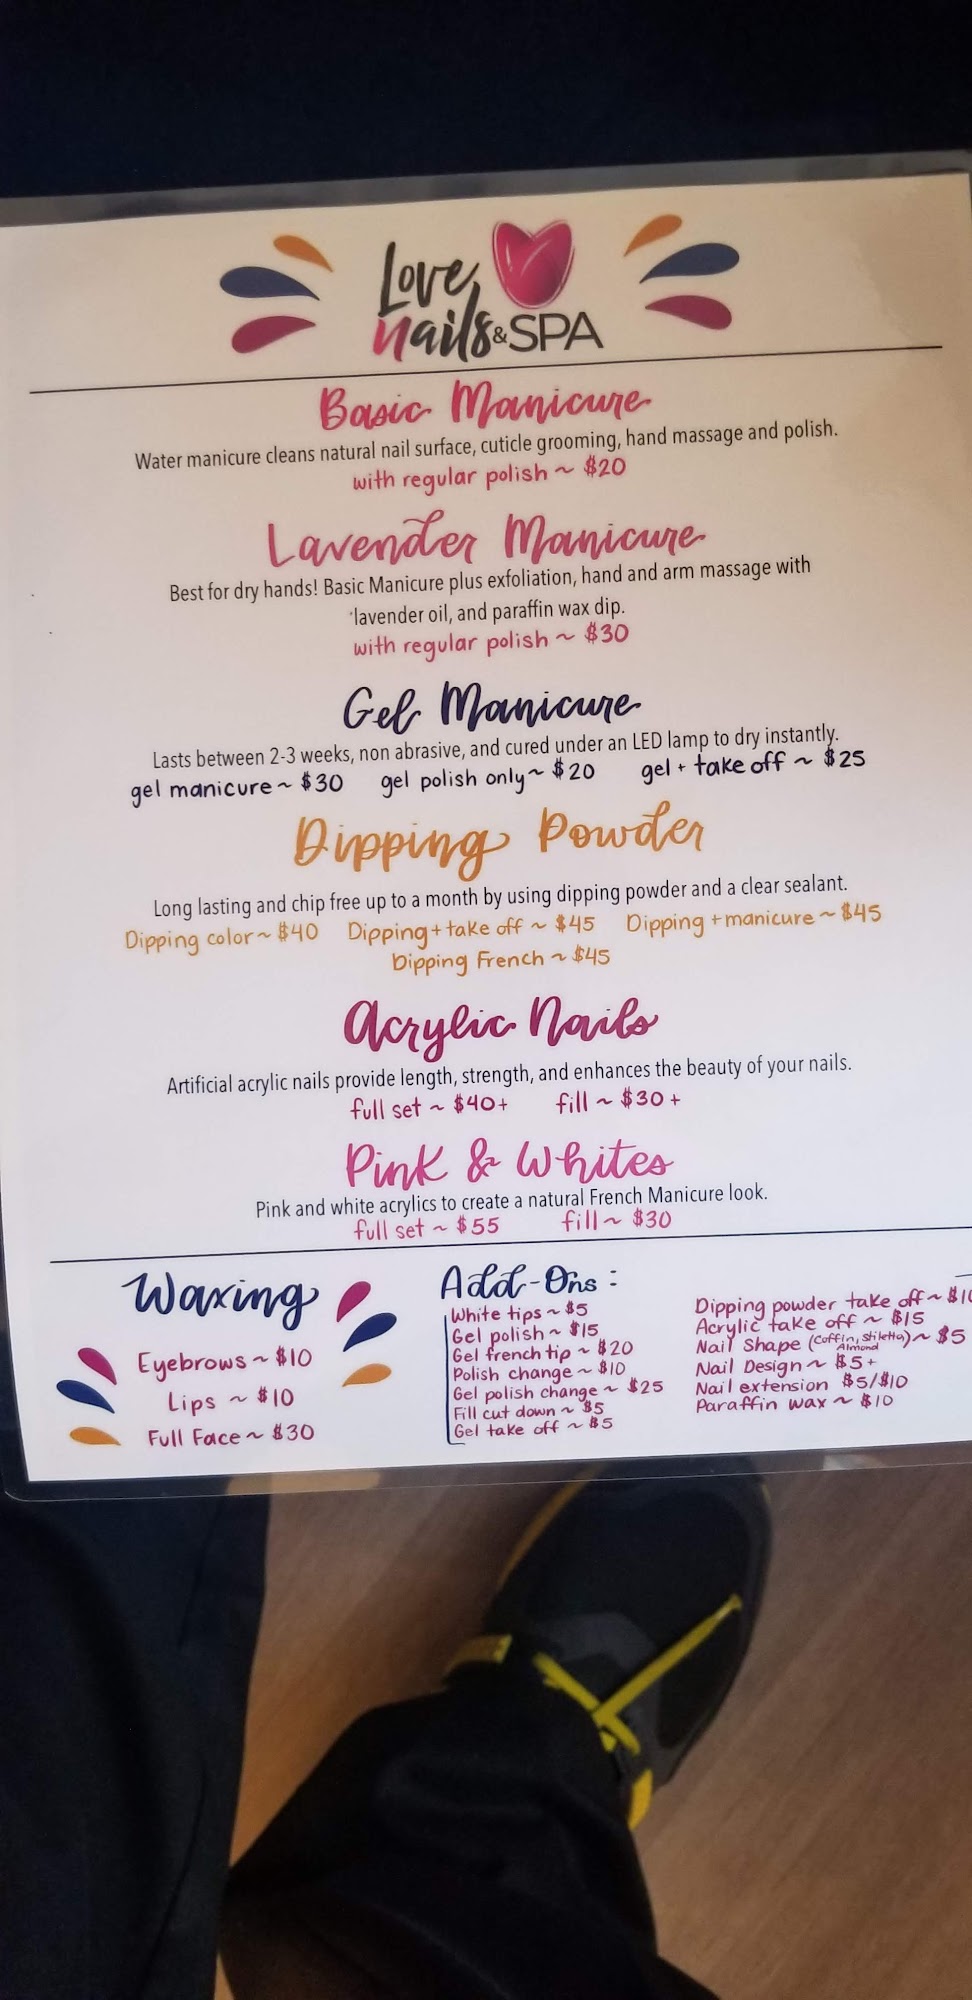 Love
nails & SPA
Basic Manicure
Water manicure cleans natural nail surface, cuticle grooming, hand massage and polish.
with regular polish ~ $20
Lavender Manicure
Best for dry hands! Basic Manicure plus exfoliation, hand and arm massage with
lavender oil, and paraffin wax dip.
with regular polish ~ $30
Gel Manicure
Lasts between 2-3 weeks, non abrasive, and cured under an LED lamp to dry instantly.
gel manicure ~ $30 gel polish only ~ $20 gel + take off ~ $25
Dipping Powder
Long lasting and chip free up to a month by using dipping powder and a clear sealant.
Dipping color ~ $40 Dipping + take off ~ $45 Dipping + manicure ~ $45
Dipping French ~ $45
Acrylic Nails
Artificial acrylic nails provide length, strength, and enhances the beauty of your nails.
full set ~ $40+ fill ~ $30+
Pink & Whites
Pink and white acrylics to create a natural French Manicure look.
full set ~ $55 fill ~ $30
Waxing
Eyebrows ~ $10
Lips ~ $10
Full Face ~ $30
Add-Ons:
White tips ~ $5
Gel polish ~ $15
Gel french tip ~ $20
Polish change ~ $10
Gel polish change ~ $25
Fill cut down ~ $5
Gel take off ~ $5
Dipping powder take off ~ $10
Acrylic take off ~ $15
Nail Shape (Coffin, Stiletto, Almond) ~ $5
Nail Design ~ $5+
Nail extension $5/$10
Paraffin wax ~ $10